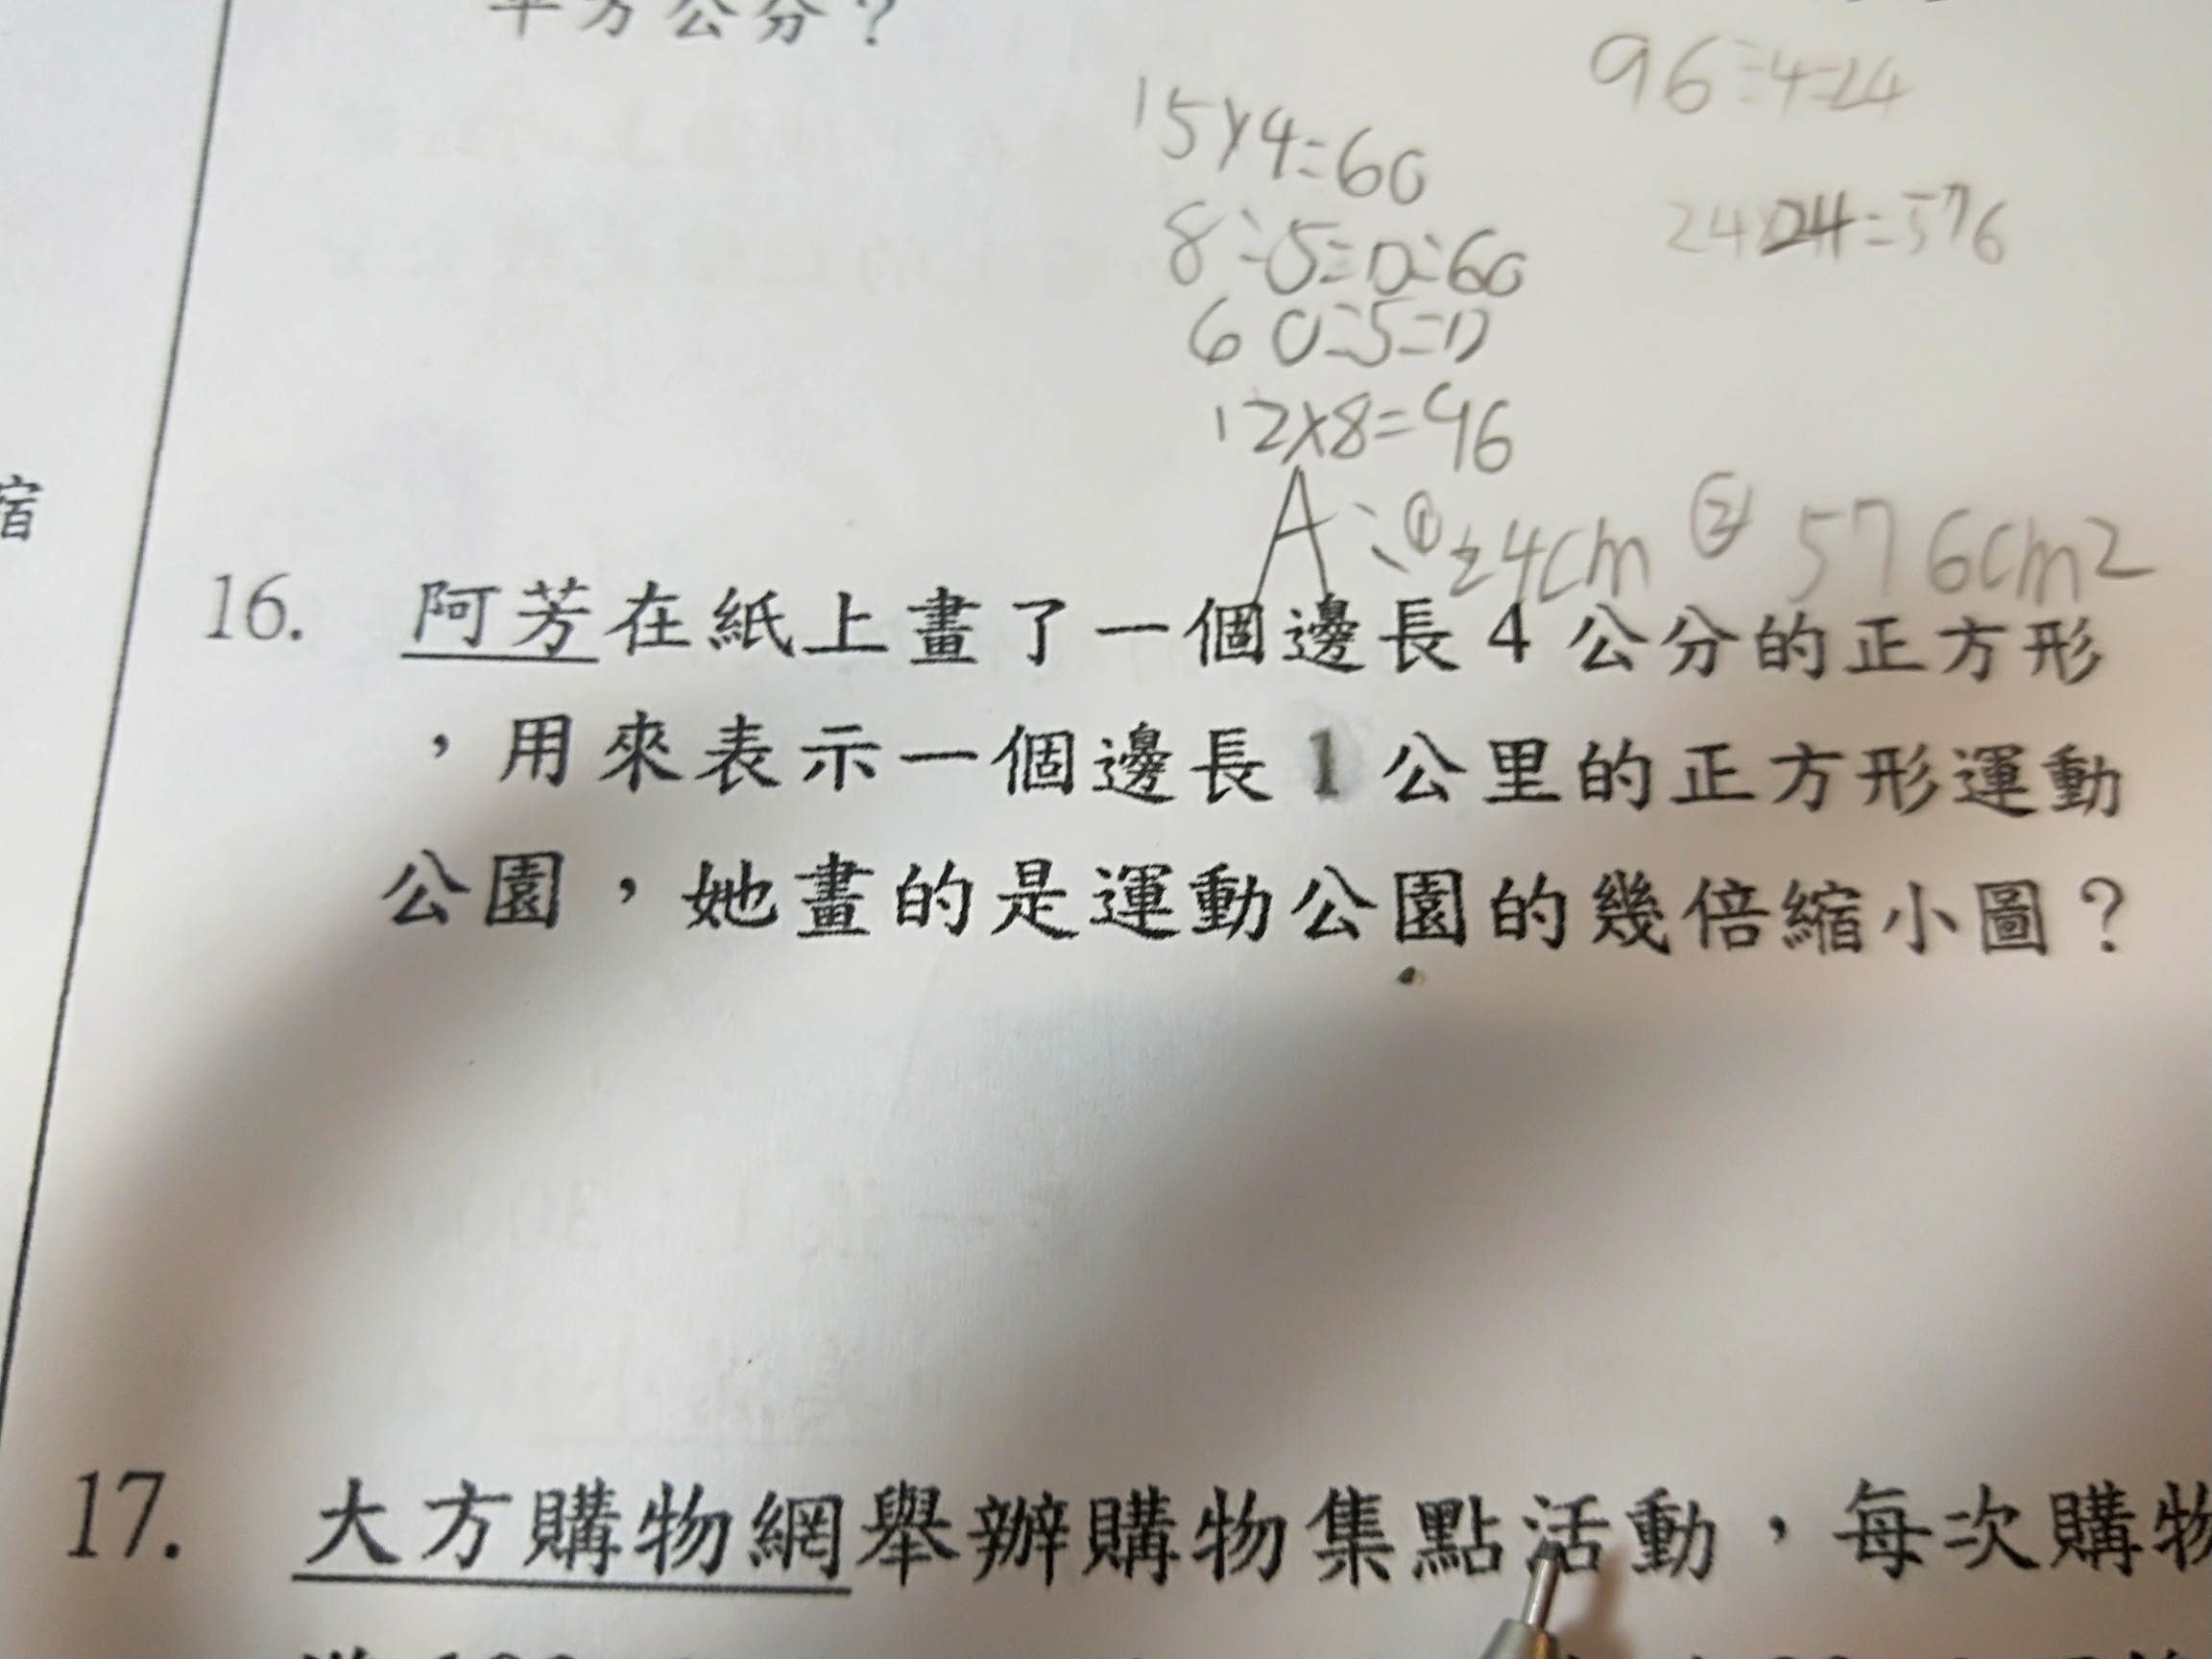 平方公分？
96÷4=24
15×4=60
24×24=576
8÷5=□÷60
60÷5=12
12×8=96
A：①24cm ②576cm2
宿
16. 阿芳在紙上畫了一個邊長4公分的正方形
，用來表示一個邊長1公里的正方形運動
公園，她畫的是運動公園的幾倍縮小圖？
17. 大方購物網舉辦購物集點活動，每次購物